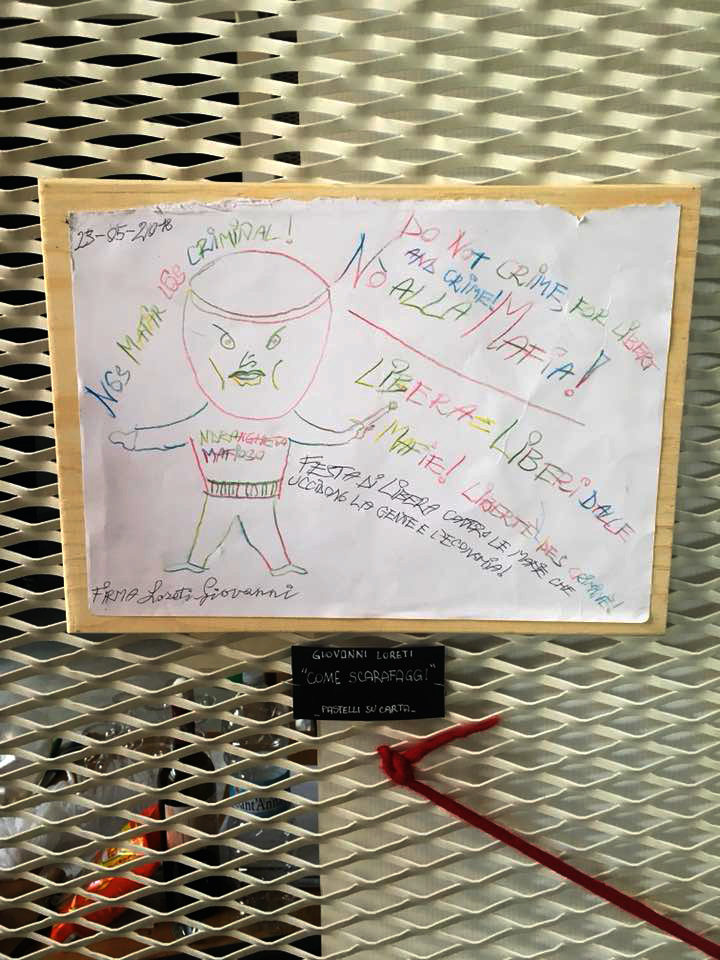 23-05-2018
NOS MAFIR LOS CRIMINAL!
DO NOT CRIMES FOR LIBERT
AND CRIME!
NO ALLA MAFIA!
LIBERA = LIBERI DALLE
MAFIE! LIBERTE DES CRIMINE!
NDRANGHETA
MAFIOSO
FESTA DI LIBERA CONTRO LE MAFIE CHE
UCCIDONO LA GENTE E L'ECONOMIA!
FIRMA Loreti Giovanni
GIOVANNI LORETI
"COME SCARAFAGGI"
_PASTELLI SU CARTA_
Sant'Ann